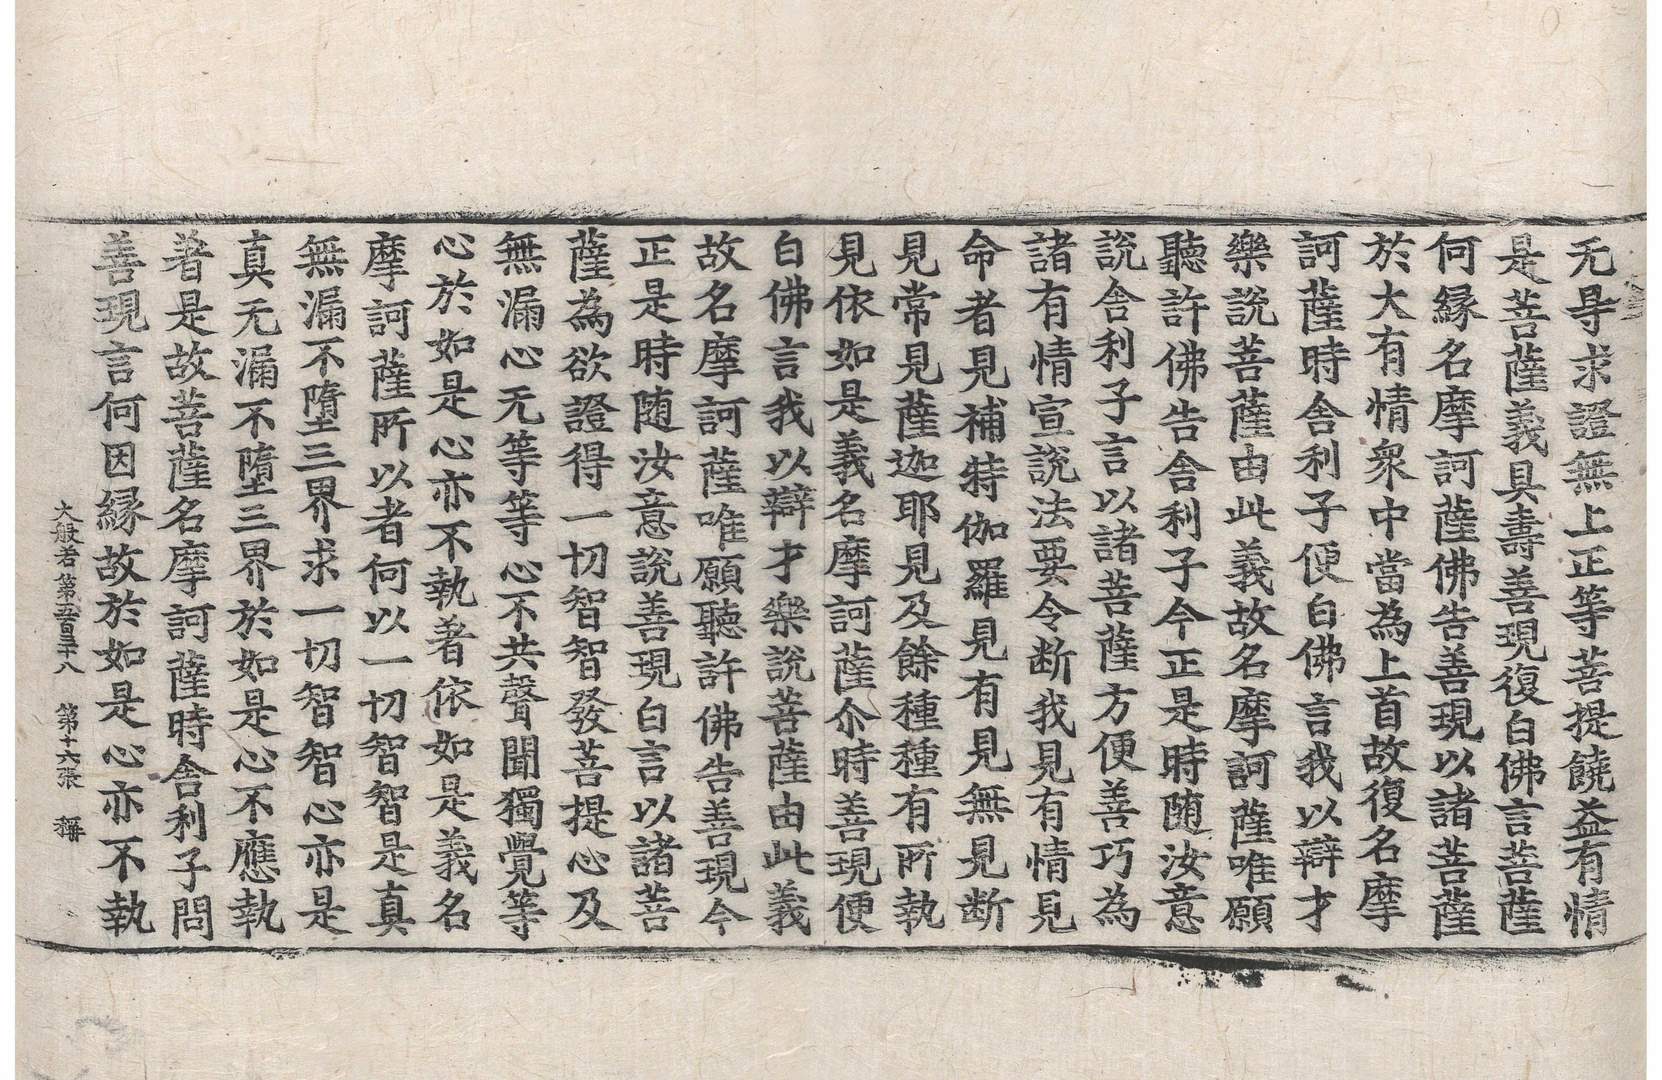 无㝵求證無上正等菩提饒益有情
是菩薩義具壽善現復白佛言菩薩
何緣名摩訶薩佛告善現以諸菩薩
於大有情衆中當為上首故復名摩
訶薩時舍利子便白佛言我以辯才
樂說菩薩由此義故名摩訶薩唯願
聽許佛告舍利子今正是時随汝意
說舍利子言以諸菩薩方便善巧為
諸有情宣說法要令断我見有情見
命者見補特伽羅見有見無見断
見常見薩迦耶見及餘種種有所執
見依如是義名摩訶薩尒時善現便
白佛言我以辯才樂說菩薩由此義
故名摩訶薩唯願聽許佛告善現今
正是時随汝意說善現白言以諸菩
薩為欲證得一切智智發菩提心及
無漏心无等等心不共聲聞獨覺等
心於如是心亦不執著依如是義名
摩訶薩所以者何以一切智智是真
無漏不墮三界求一切智智心亦是
真无漏不墮三界於如是心不應執
著是故菩薩名摩訶薩時舍利子問
善現言何因緣故於如是心亦不執
大般若第五百三十八　第十六張　稱